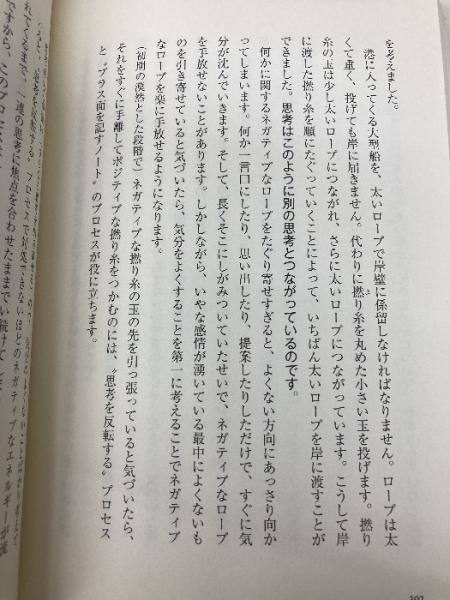 を考えました。
港に入ってくる大型船を、太いロープで岸壁に係留しなければなりません。ロープは太
くて重く、投げても岸に届きません。代わりに撚り糸を丸めた小さい玉を投げます。撚り
よ
糸の玉は少し太いロープにつながれ、さらに太いロープにつながっています。こうして岸
に渡した撚り糸を順にたぐっていくことによって、いちばん太いロープを岸に渡すことが
できました。思考はこのように別の思考とつながっているのです。
何かに関するネガティブなロープをたぐり寄せすぎると、よくない方向にあっさり向か
ってしまいます。何か一言口にしたり、思い出したり、提案したりしただけで、すぐに気
分が沈んでいきます。そして、長くそこにしがみついていたせいで、ネガティブなロープ
を手放せないことがあります。しかしながら、いやな感情が湧いている最中によくないも
のを引き寄せていると気づいたら、気分をよくすることを第一に考えることでネガティブ
なロープを楽に手放せるようになります。
（初期の漠然とした段階で）ネガティブな撚り糸の玉の先を引っ張っていると気づいたら、
それをすぐに手離してポジティブな撚り糸をつかむのには、〝思考を反転する〟プロセス
と〝プラス面を記すノート〟のプロセスが役に立ちます。
思考を反転する〟プロセスで対処できないほどのネガティブなエネルギーが
れてくるまで、一連の思考に焦点を合わせたままでい続けて
ですから、このプロ
307